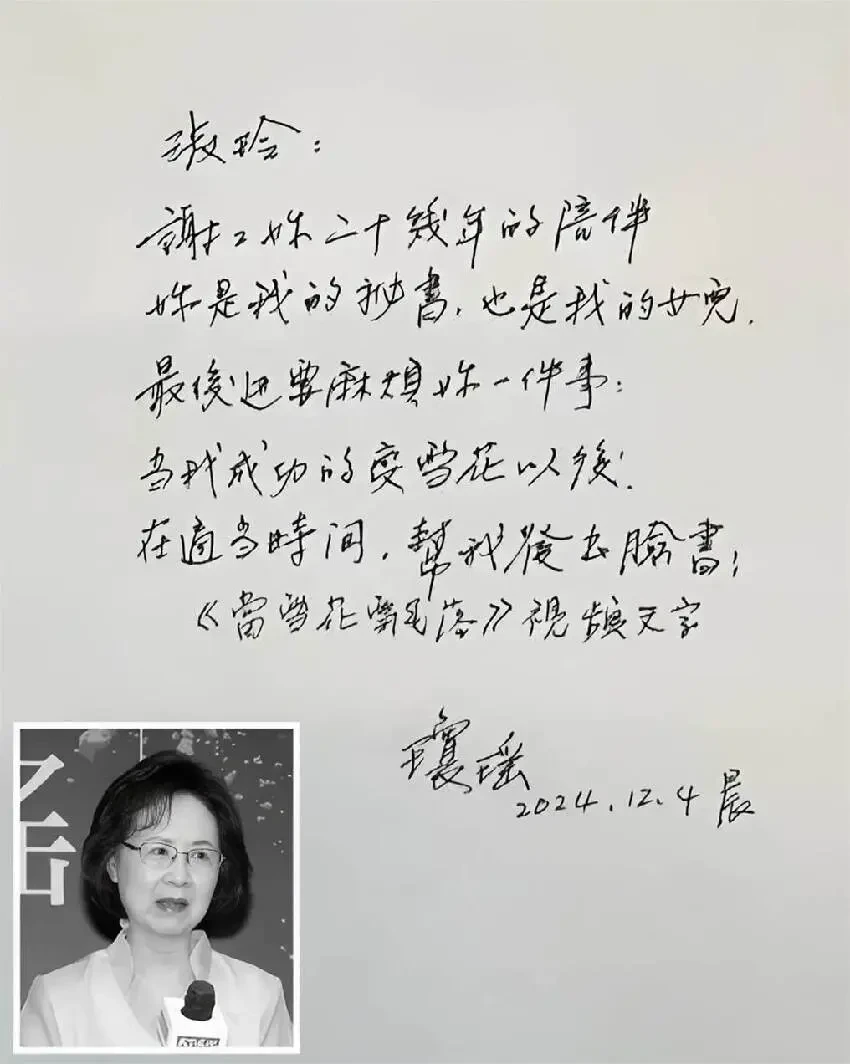 張晗：
謝謝妳二十幾年的陪伴
妳是我的秘書，也是我的女兒，
最後还要麻煩妳一件事：
当我成功的变雪花以後，
在適当時间，幫我發出臉書：
《當雪花飄落》視頻文字
瓊瑤
2024.12.4 晨